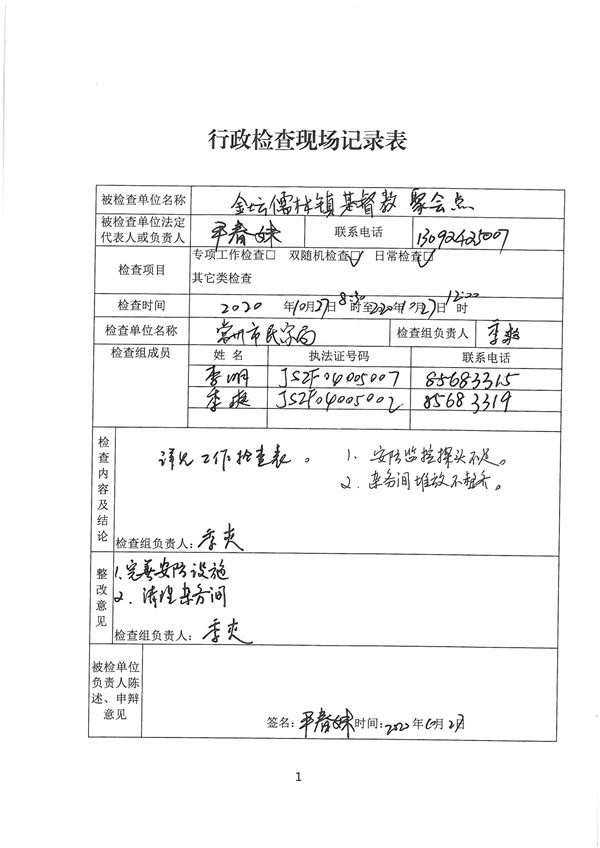 行政检查现场记录表
被检查单位名称 金坛儒林镇基督教聚会点
被检查单位法定代表人或负责人 平春妹 联系电话 13092425007
检查项目 专项工作检查□ 双随机检查☑ 日常检查☑
其它类检查
检查时间 2020年10月27日8:30时至2020年10月27日12:00时
检查单位名称 常州市民宗局 检查组负责人 季
检查组成员 姓名 执法证号码 联系电话
李明 JSZF04005007 85683315
季 JSZF04005002 85683319
检查内容及结论
详见工作检查表。 1、安防监控探头不足。
2、杂务间堆放不整齐。
检查组负责人：季
整改意见
1、完善安防设施
2、清理杂务间
检查组负责人：季
被检单位负责人陈述、申辩意见
签名：平春妹 时间：2020年 月2 日
1